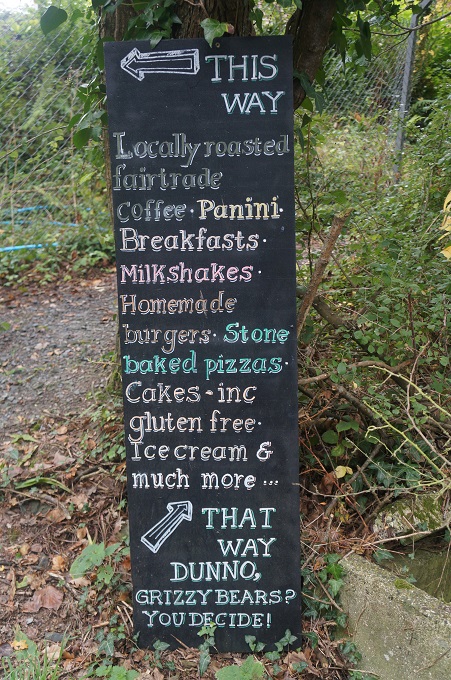 THIS
WAY
Locally roasted
fairtrade
coffee · Panini ·
Breakfasts ·
Milkshakes ·
Homemade
burgers · Stone
baked pizzas ·
Cakes - inc
gluten free ·
Ice cream &
much more ...
THAT
WAY
DUNNO,
GRIZZY BEARS?
YOU DECIDE!